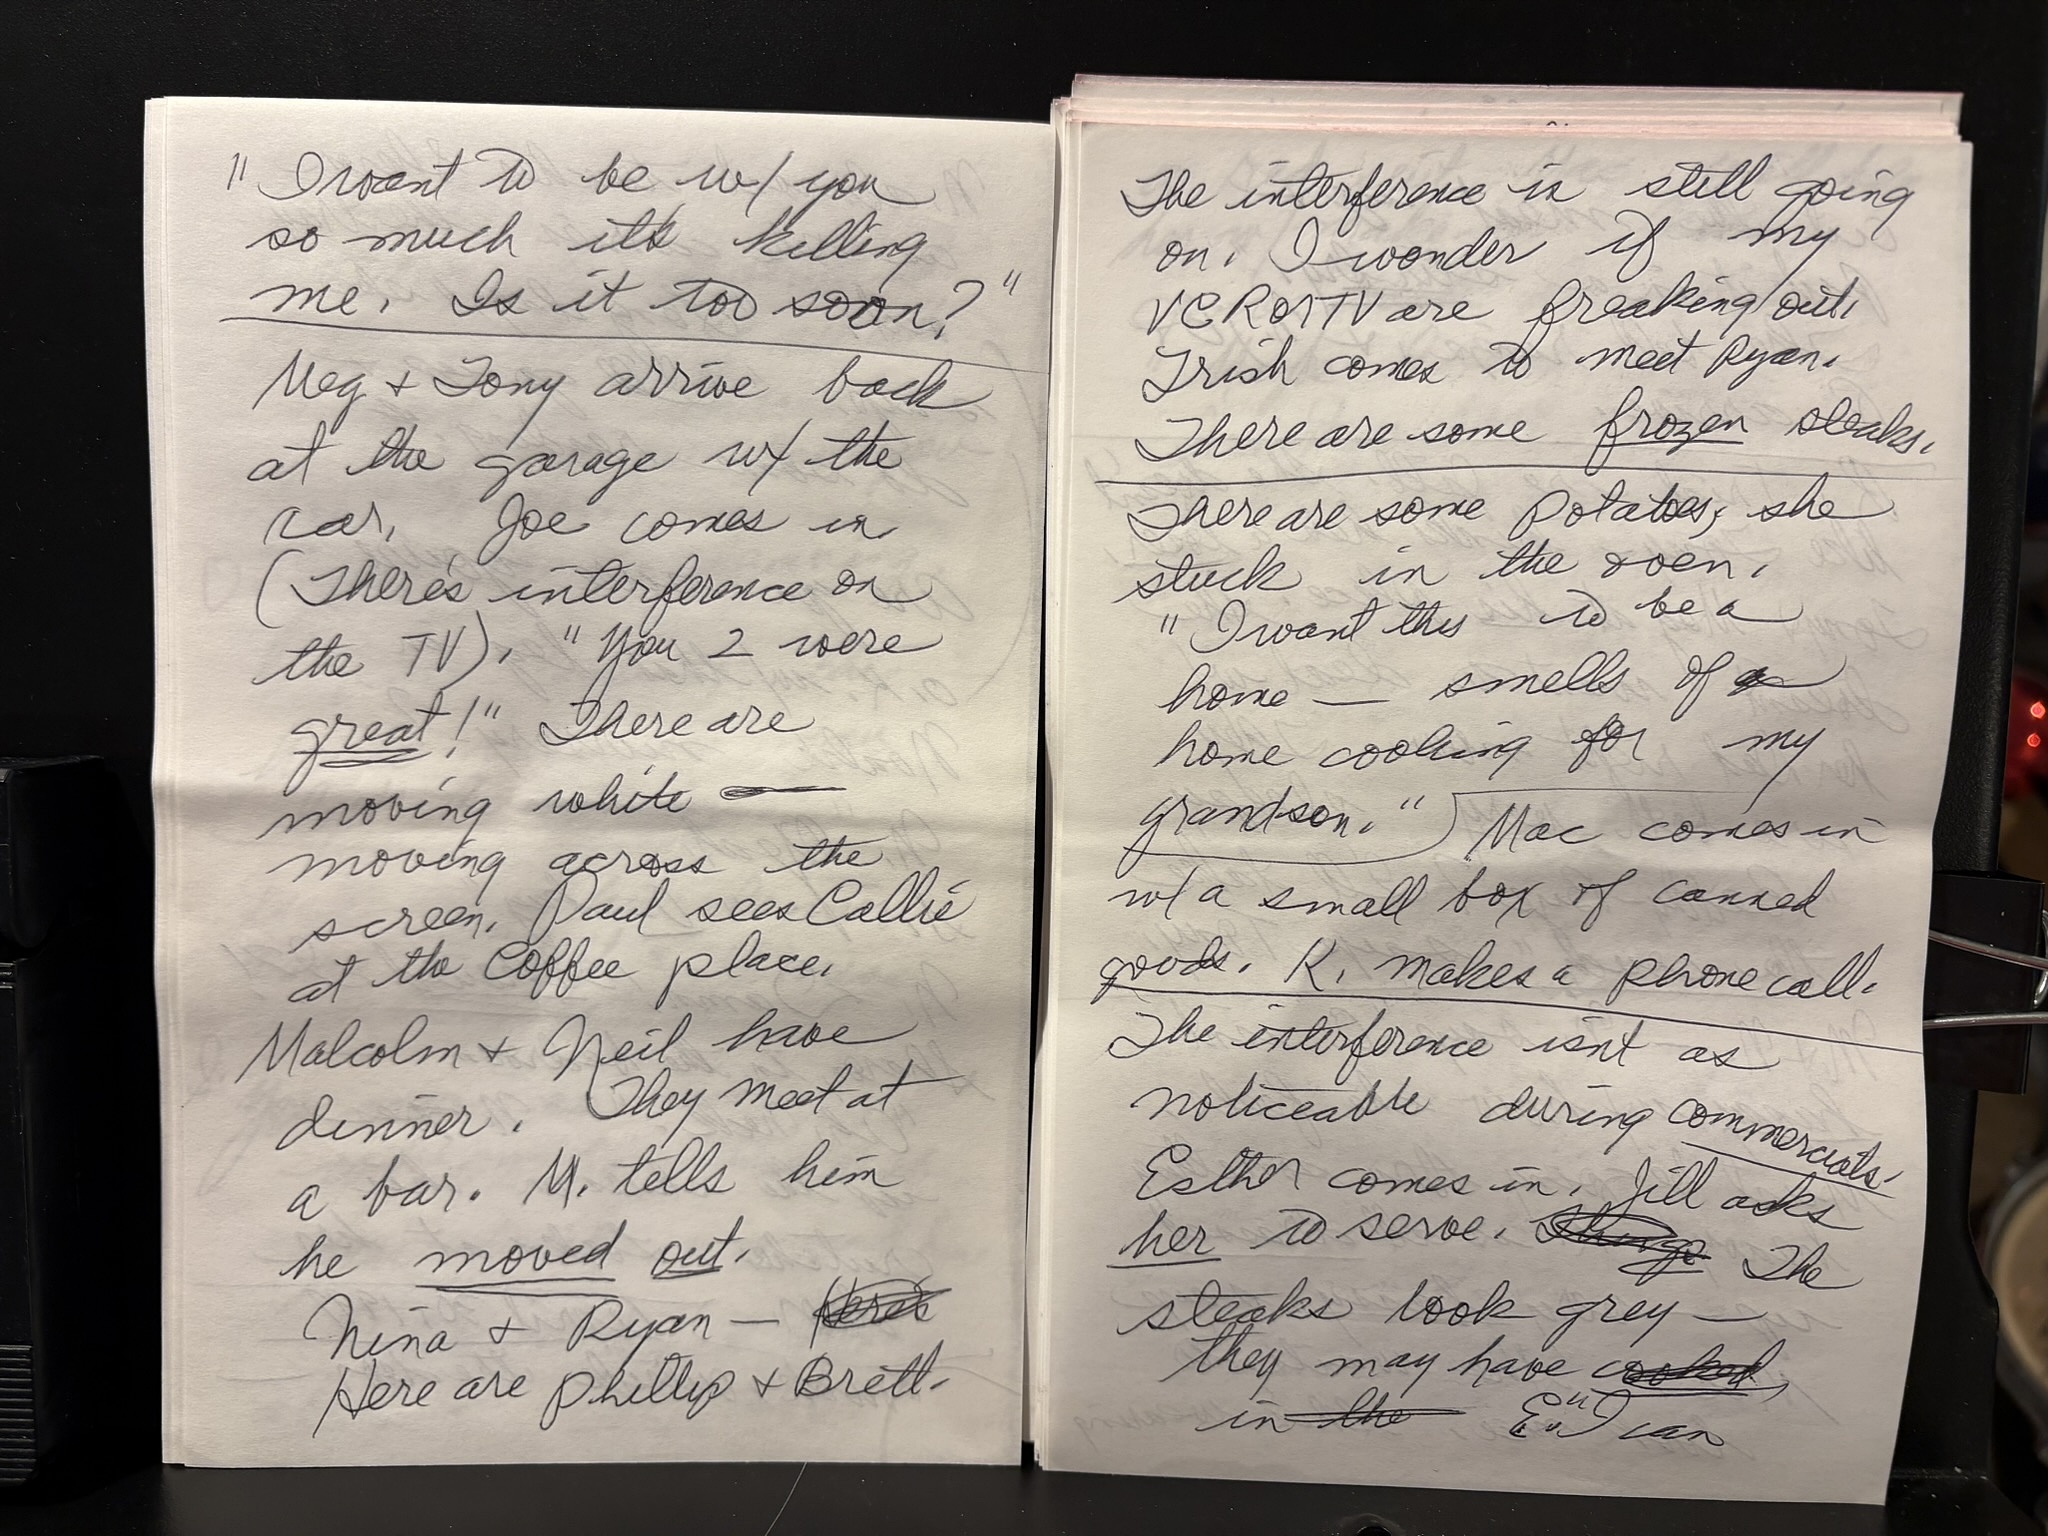 " I want to be w/ you
so much it's killing
me. Is it too soon? "
Meg + Tony arrive back
at the garage w/ the
car. Joe comes in
(There's interference on
the TV). " You 2 were
great! " There are
moving white
moving across the
screen. Paul sees Callie
at the Coffee place.
Malcolm + Neil have
dinner. They meet at
a bar. M. tells him
he moved out.
Nina + Ryan — Here's
Here are Phillip + Brett.
The interference is still going
on. I wonder if my
VCR or TV are freaking out.
Trish comes to meet Ryan.
There are some frozen steaks.
There are some potatoes, she
stuck in the oven.
" I want this to be a
home — smells of a
home cooking for my
grandson. " Mac comes in
w/ a small box of canned
goods. K. makes a phone call.
The interference isn't as
noticeable during commercials.
Esther comes in. Jill asks
her to serve. Things The
steaks look grey —
they may have cooked,
in the E: " I can